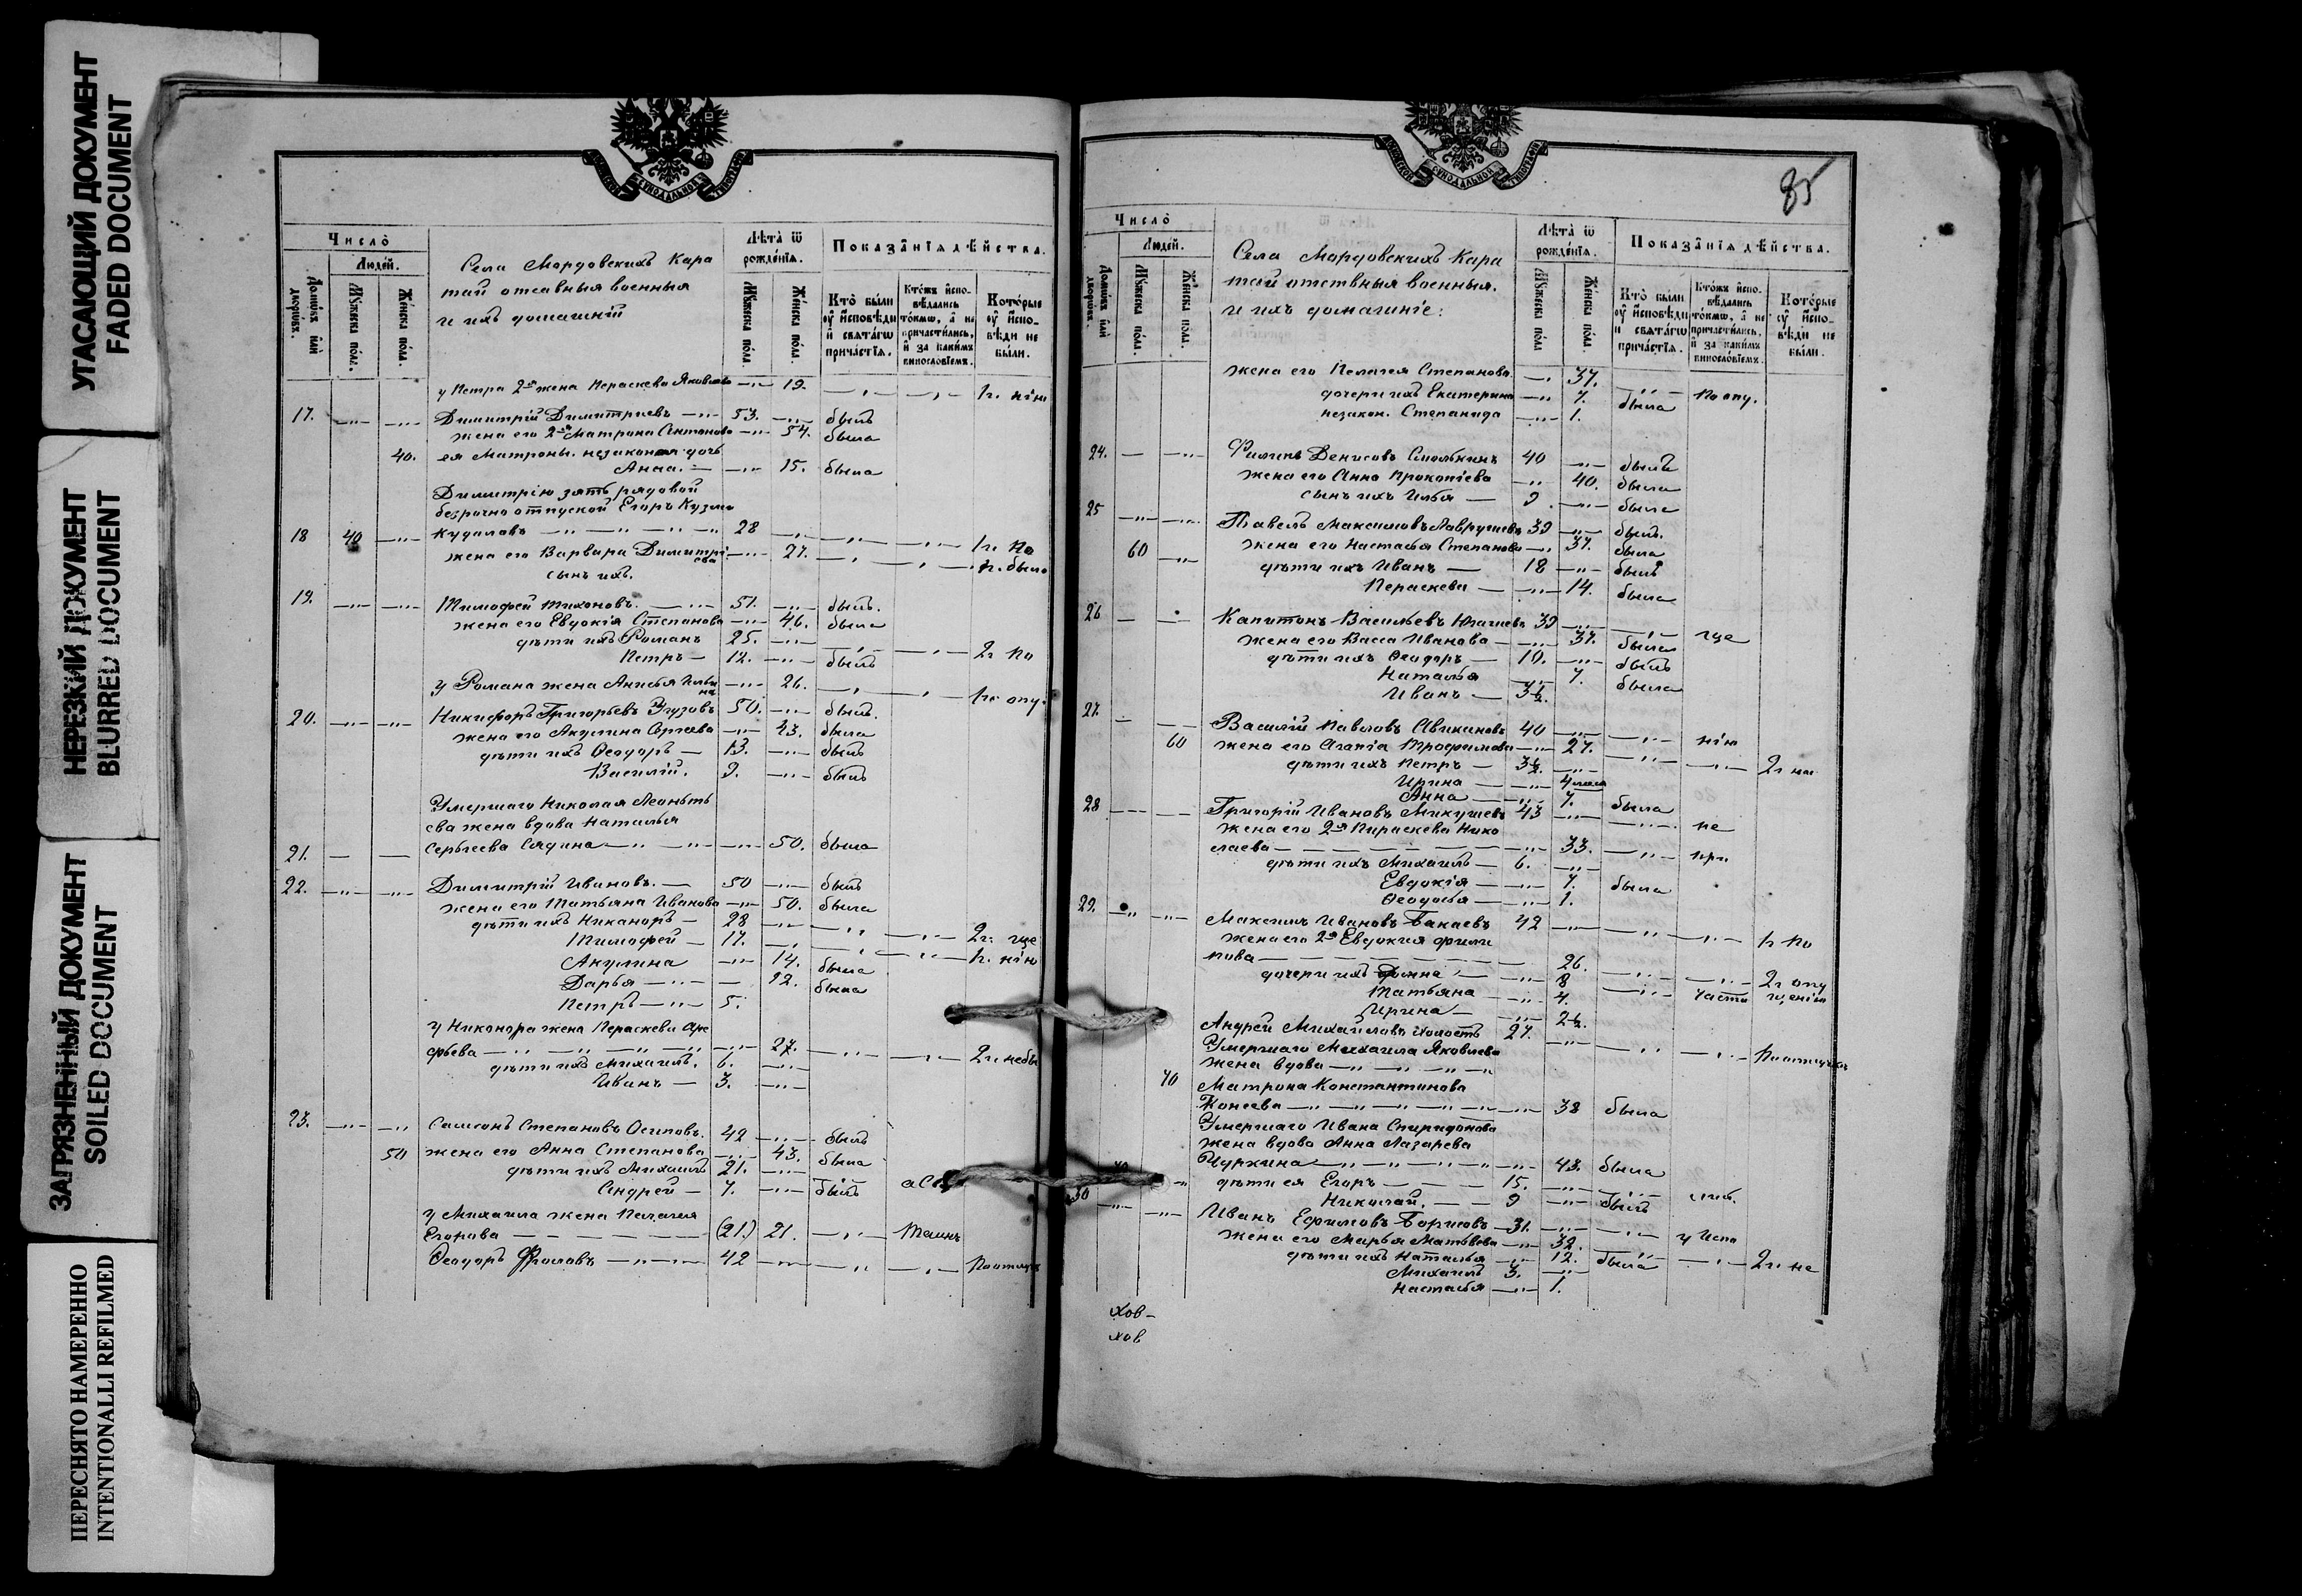 УГАСАЮЩИЙ ДОКУМЕНТ
FADED DOCUMENT
НЕРЕЗКИЙ ДОКУМЕНТ
BLURRED DOCUMENT
ЗАГРЯЗНЕННЫЙ ДОКУМЕНТ
SOILED DOCUMENT
ПЕРЕСНЯТО НАМЕРЕННО
INTENTIONALLI REFILMED
Число̀
Людей.
Мꙋжеска по́ла.
Же́нска по́ла.
Села Мордовскихъ Кара
тай отсавныя военныя
и ихъ домашнiи
Лѣта̀ ѿ рожде́нїѧ.
Мꙋжеска по́ла.
Же́нска по́ла.
Показа̑нїѧ дѣ́йства.
Кто̀ бы́ли ᲂу҆ и҆сповѣ́ди и҆ свѧта́гѡ прича́стїѧ.
Кто́жъ и҆спо­вѣ́дались то́кмѡ, а҆ не причасти́лись, и҆ за каки́мъ винослóвїемъ.
Кото́рые ᲂу҆ и҆спо­вѣ́ди не бы́ли.
у Петра 2я жена Пераскева Яковлева 19.
17. Димитрiй Димитриевъ 53. былъ
жена его 2я Матрона Антонова 54. была
40. ея Матроны. незаконая дочь
Анна. 15. была
Димитрiю зять рядовой
безрочно отпуской Егоръ Кузми
18 40 Кудаловъ 28 по
жена его Варвара Димитрi
ева 27.
сынъ ихъ.
19. Тимофей Тихоновъ. 51. былъ.
жена его Евдокiя Степанова 46. была
дѣти ихъ Романъ 25. 2г по
Петръ 12. былъ
у Романа жена Анисья Ильи
на 26. опу.
20. Никифоръ Григорьевъ 50. былъ.
жена его Акулина Сергѣева 43. была
дѣти ихъ Ѳеодоръ 13. былъ
Василiй. 9. былъ
Умершаго Николая Леонть
ева жена вдова Наталья
21. Сергѣева Сядина 50. была
22. Димитрiй Ивановъ. 50 былъ
жена его Татьяна Иванова 50. была
дѣти ихъ Никаноръ 28 2г. уще
Тимофей 17. нiю
Акулина 14. была
Дарья 12. была
Петръ 5.
у Никонора жена Пераскева Аре
фьева 27. 2г. небы
дѣти ихъ Михаилъ. 6.
Иванъ 3.
23. Самсонъ Степановъ Осиповъ. 42 былъ
50 жена его Анна Степанова 43. была
дѣти ихъ Михаилъ 21.
Андрей 7. былъ
у Михаила жена Пелагия
Егорова (21.) 21.
Ѳеодоръ Фроловъ 42 Поотлуч
85
Число̀
Людей.
Мꙋжеска по́ла.
Же́нска по́ла.
Села Мордовскихъ Кара
тай отствныя военныя.
и ихъ домашнiе:
Лѣта̀ ѿ рожде́нїѧ.
Мꙋжеска по́ла
Же́нска по́ла.
Показа̑нїѧ дѣ́йства.
Кто̀ бы́ли ᲂу҆ и҆сповѣ́ди и҆ свѧта́гѡ прича́стїѧ.
Кто́жъ и҆спо­вѣ́дались то́кмѡ, а҆ не причасти́лись, и҆ за каки́мъ винослóвїемъ.
Кото́рые ᲂу҆ и҆спо­вѣ́ди не бы́ли.
жена его Пелагея Степанова 37. По опу.
дочери ихъ Екатерина 7. была
незакон. Степанида 1.
24. Филипъ Денисовъ Смолькинъ 40 былъ
жена его Анна Прокопiева 40. была
сынъ ихъ Илья 9 была
25 Павелъ Максимовъ Лаврушевъ 39 былъ.
60 жена его Настасья Степанова 37. была
дѣти ихъ Иванъ 18 былъ
Пераскева 14. была
26 Капитонъ Васильевъ 39 уще
жена его Васса Иванова 37. была
дѣти ихъ Ѳеодоръ 10. былъ
Наталья 7. была
Иванъ 3½.
27. Василiй Павловъ Авикиновъ 40 нiю
60 жена его Агапiа Трофимова 27. 2г
дѣти ихъ Петръ 3½.
Ирина
Анна 7. была
28 Григорiй Ивановъ Микушевъ 43 не
жена его 2я Пираскева Нико
лаева 33. при
дѣти ихъ Михаилъ 6.
Евдокiя 7. была
Ѳеодосья 1.
29. Максимъ Ивановъ Бакаевъ 42 по
жена его 2я Евдокия фили
пова 26. 2г опу
дочери ихъ Домна 8 части щенiю
Татьяна 4.
Ирина 2½.
Андрей Михайловъ холостъ 27. Поотлучк
Умершаго Михаила Яковлева
жена вдова
70 Матрона Константинова
Конеева 38 была
Умершаго Ивана Спиридонова
жена вдова Анна Лазарева
43. была
дѣти ея Егоръ 15.
Николай. 9 былъ
30 Иванъ Ефимовъ Борисовъ 31. у Испо
жена его Марья Матвѣева 32. 2г. не
дѣти ихъ Наталья 12. была
Михаилъ 3.
Настасья 1.